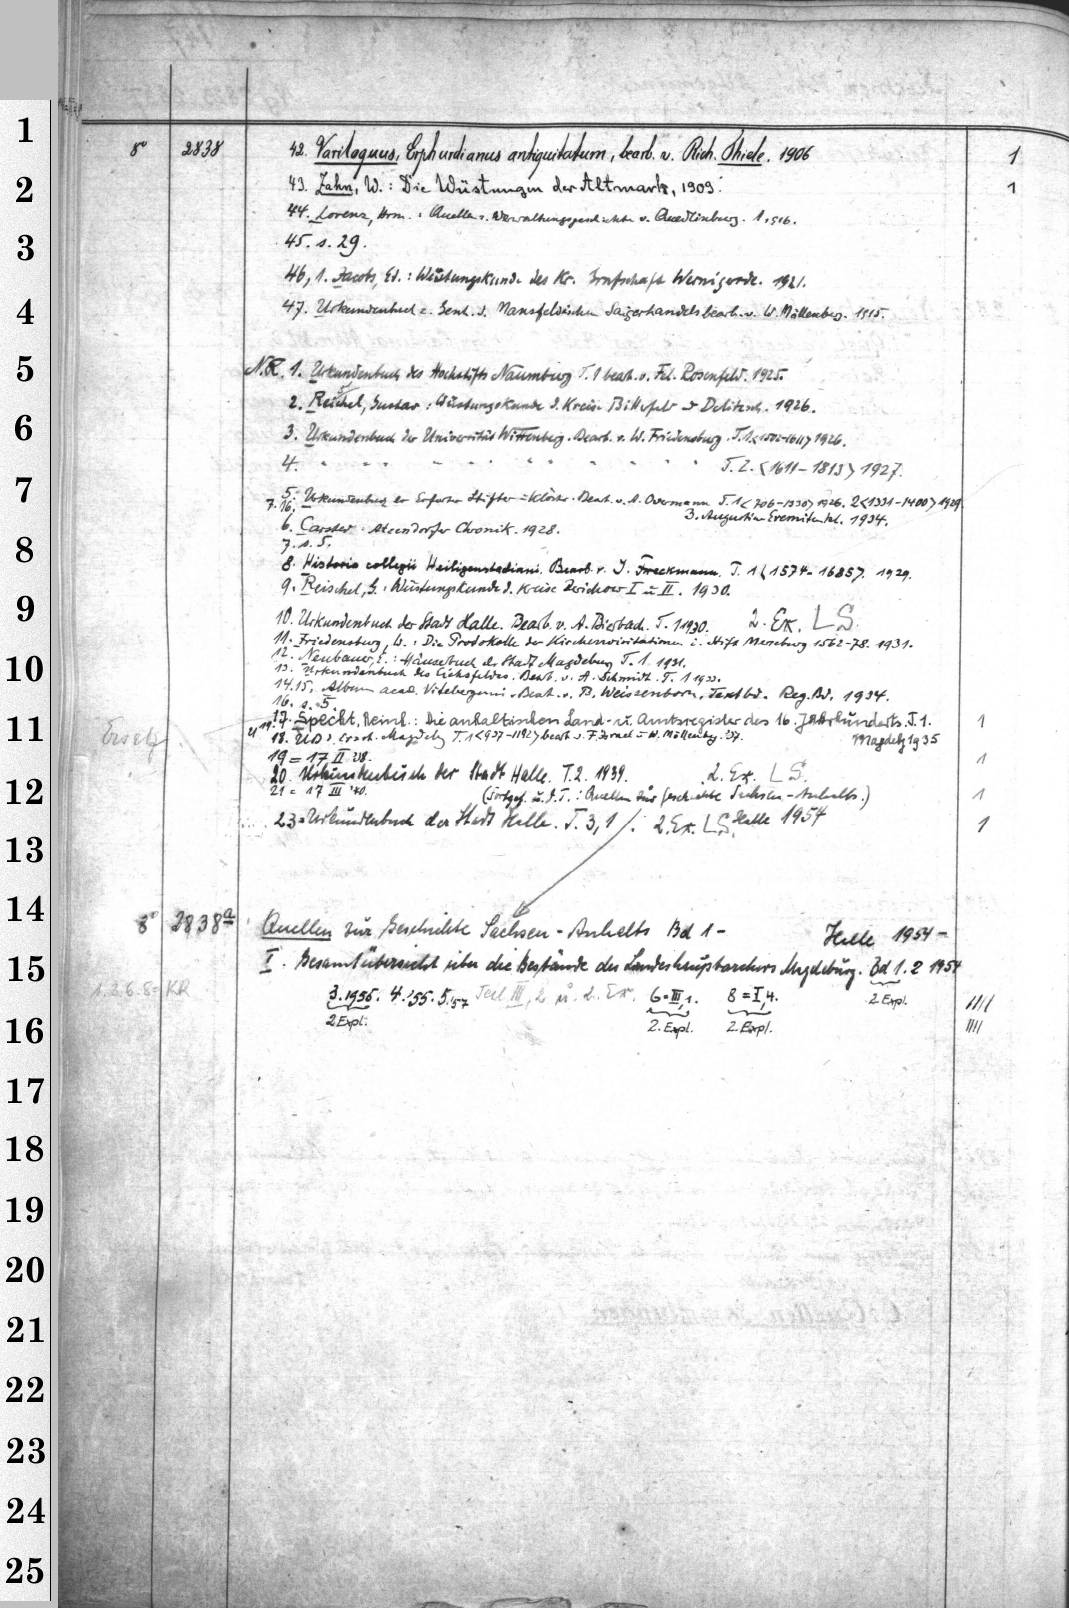 1
8° 2838 42. Variloquus, Erphurdianus antiquitatum, bearb. v. Rich. Thiele. 1906 1
2 43. Zahn, W.: Die Wüstungen der Altmark, 1909. 1
44. Lorenz, Herm.: Quellen z. Verwaltungsgeschichte v. Quedlinburg. 1, 1916.
3 45. s. 29.
46, 1. Jacobs, Ed.: Wüstungskunde des Kr. Grafschaft Wernigerode. 1921.
4 47. Urkundenbuch z. Gesch. d. Mansfeldischen Saigerhandels bearb. v. W. Möllenberg. 1915.
5 N.R. 1. Urkundenbuch des Hochstifts Naumburg T. 1 bearb. v. Fel. Rosenfeld. 1925.
2. Reischel, Gustav: Wüstungskunde d. Kreise Bitterfeld u. Delitzsch. 1926.
6 3. Urkundenbuch der Universität Wittenberg. Bearb. v. W. Friedensburg. T. 1 <1502-1611> 1926.
4. " " " " " " " " " T. 2. <1611-1813> 1927.
7 5. Urkundenbuch der Erfurter Stifter u. Klöster. Bearb. v. A. Overmann T. 1 <706-1330> 1926. 2 <1331-1400> 1929.
7. 16. 3. Augustiner Eremitenkl. 1934.
6. Carsted: Atzendorfer Chronik. 1928.
8 7. s. 5.
8. Historia collegii Heiligenstadiani. Bearb. v. J. Freckmann. T. 1 <1574-1685>. 1929.
9. Reischel, G.: Wüstungskunde d. Kreise Jerichow I u. II. 1930.
9 10. Urkundenbuch der Stadt Halle. Bearb. v. A. Bierbach. T. 1 1930. 2. Ex. LS.
11. Friedensburg, W.: Die Protokolle der Kirchenvisitationen i. Stift Merseburg 1562-78. 1931.
12. Neubauer, E.: Häuserbuch der Stadt Magdeburg T. 1. 1931.
10 13. Urkundenbuch des Eichsfeldes. Bearb. v. A. Schmidt. T. 1 1933.
14. 15. Album acad. Vitebergensis. Bearb. v. B. Weissenborn. Textbd. Reg. Bd. 1934.
16. s. 5.
11 Ersetz 17. Specht, Reinh.: Die anhaltischen Land- u. Amtsregister des 16. Jahrhunderts. T. 1. 1
Magdebg 1935
18. UB d. Erzst. Magdebg T. 1 <937-1192> bearb. v. F. Israel u. W. Möllenberg. '37.
19 = 17 II '38. 1
20. Urkundenbuch der Stadt Halle. T. 2. 1939. 2. Ex. LS.
12 21 = 17 III '40. (Fortges. u. d. T.: Quellen zur Geschichte Sachsen-Anhalts.) 1
23. Urkundenbuch der Stadt Halle. T. 3, 1 /. 2. Ex. LS. Halle 1954 1
13
14 8° 2838a Quellen zur Geschichte Sachsen-Anhalts Bd 1- Halle 1954-
15 I. Gesamtübersicht über die Bestände des Landeshauptarchivs Magdeburg. Bd 1. 2 1954
1. 3. 6. 8 = KR 3. 1956. 4. '55. 5. '57 Teil III, 2 u. 2. Ex. 6 = III, 1. 8 = I, 4. 2 Expl. ////
16 2 Expl. 2. Expl. 2. Expl. ////
17
18
19
20
21
22
23
24
25